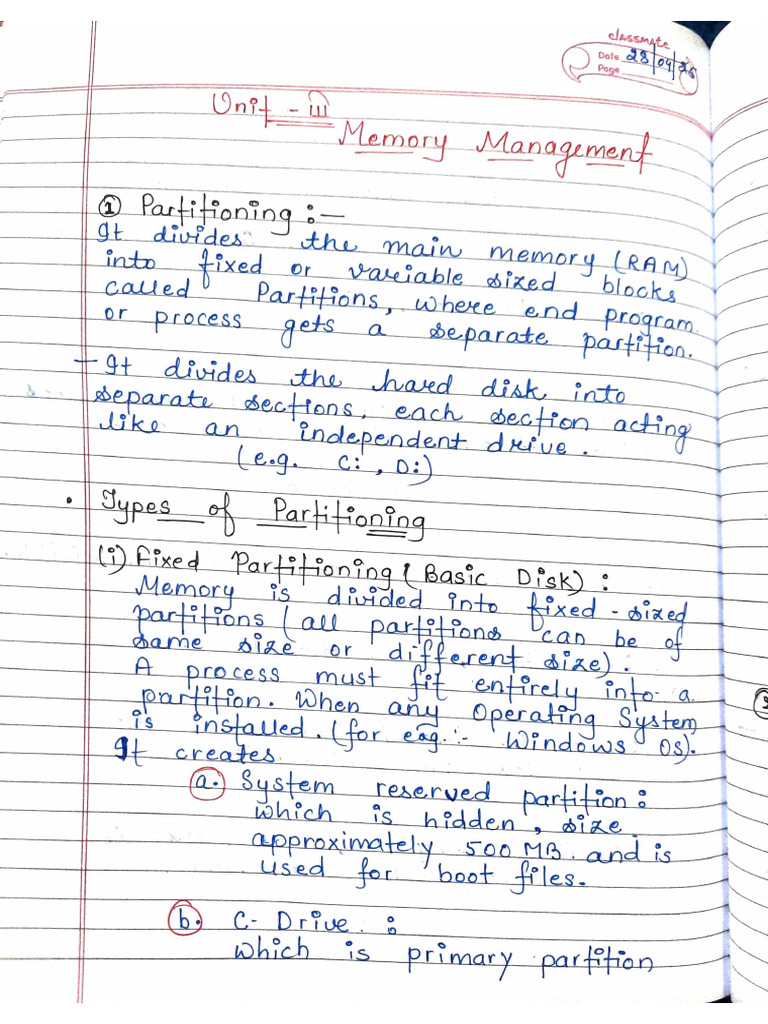 classmate
Date 28/04/25
Page
Unit - III
Memory Management
① Partitioning :-
It divides the main memory (RAM)
into fixed or variable sized blocks
called Partitions, where end program
or process gets a separate partition.
- It divides the hard disk into
separate sections, each section acting
like an independent drive.
(e.g. C: , D:)
• Types of Partitioning
(i) Fixed Partitioning (Basic Disk) :
Memory is divided into fixed - sized
partitions (all partitions can be of
same size or different size).
A process must fit entirely into a
partition. When any Operating System
is installed. (for eg :- Windows OS).
It creates
a. System reserved partition :
which is hidden, size
approximately 500 MB. and is
used for boot files.
b. C- Drive :
which is primary partition